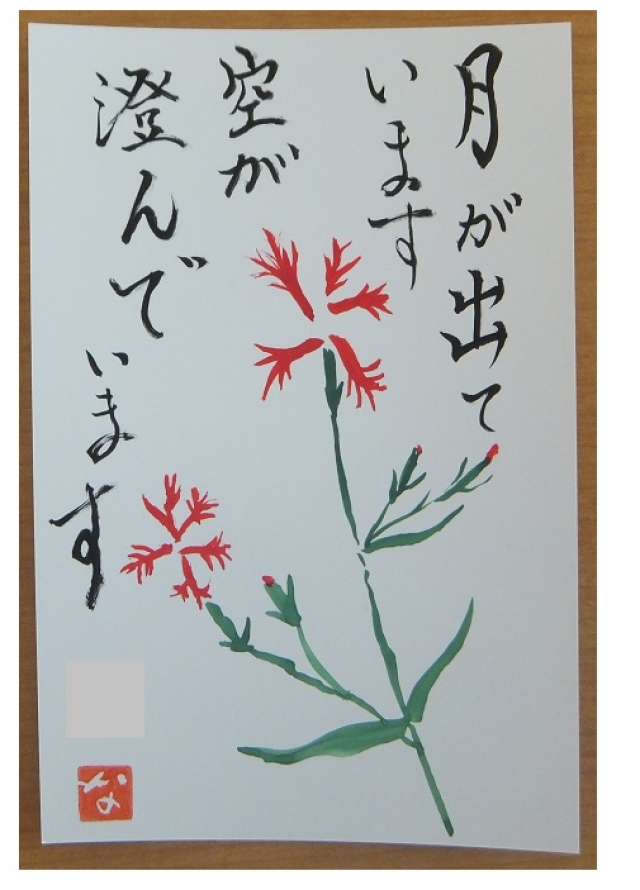 月が出て
います
空が
澄んで
います
な